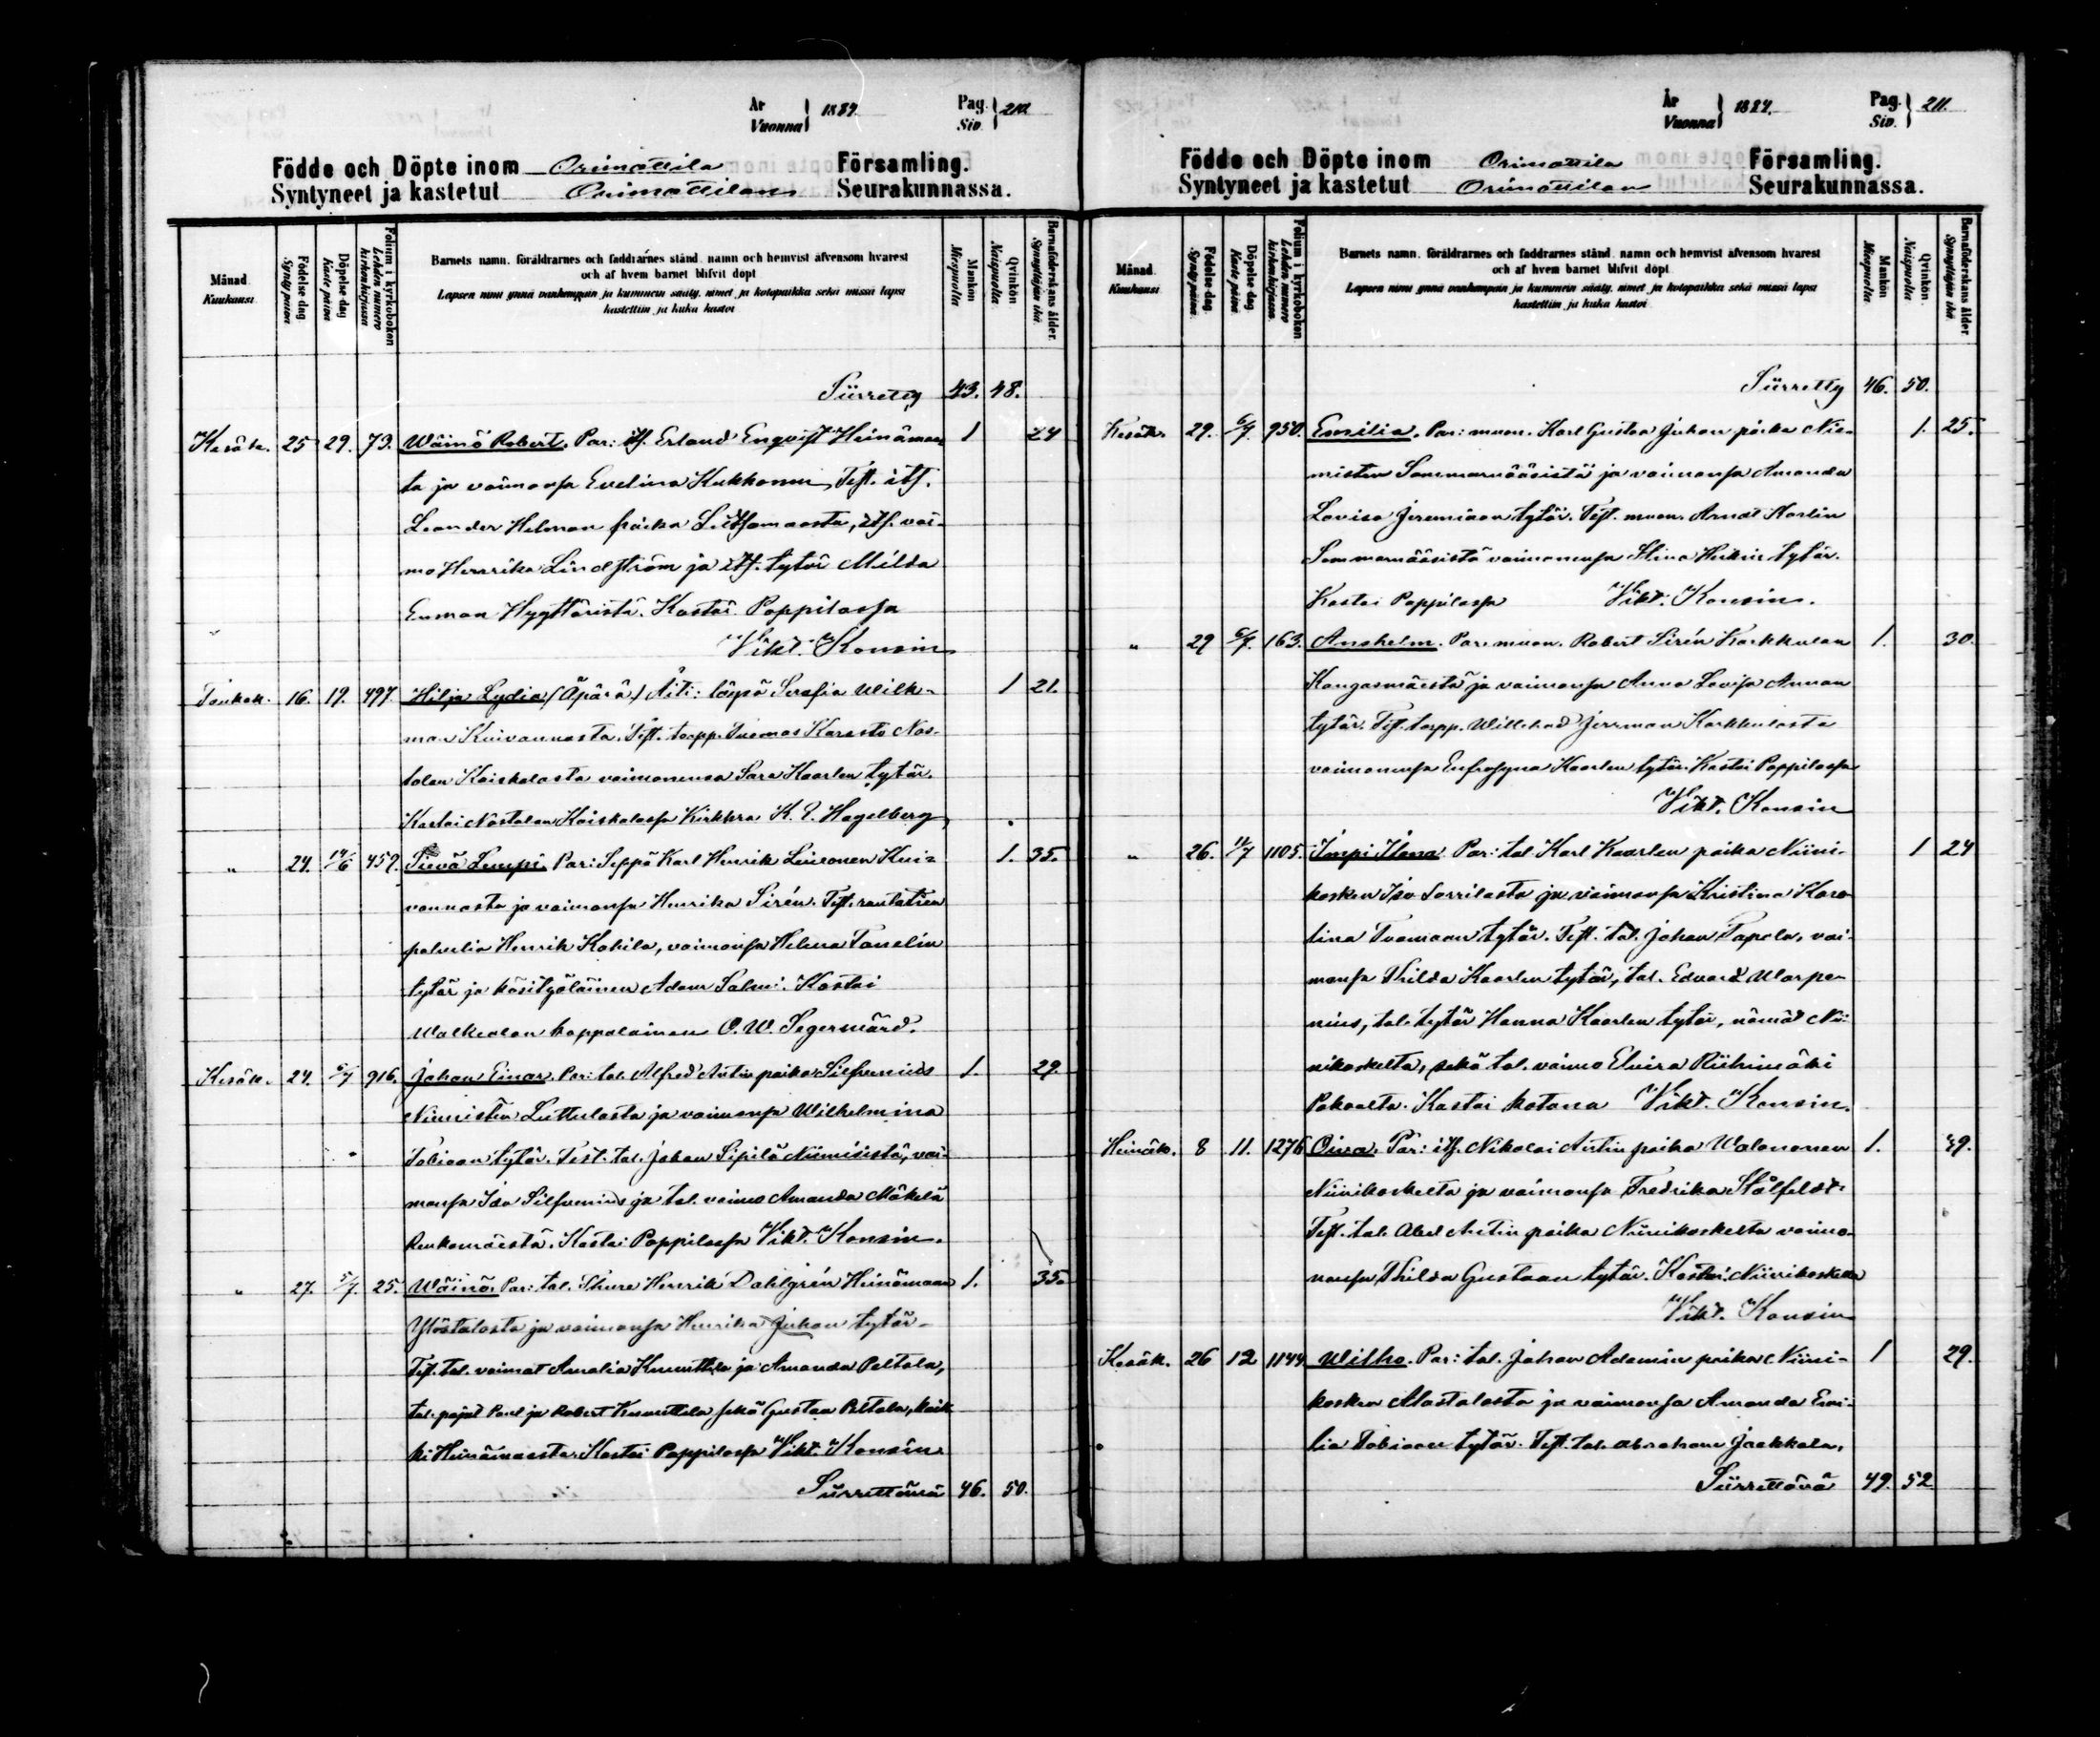 År
Vuonna } 1889.
Pag.
Siv. } 210
Födde och Döpte inom Orimattila Församling.
Syntyneet ja kastetut Orimattilan Seurakunnassa.
Månad.
Kuukausi
Födelse dag
Synty päivä
Döpelse dag
Kaste päivä
Folium i kyrkoboken
Lehden numero kirkonkirjassa
Barnets namn, föräldrarnes och faddrarnes stånd, namn och hemvist äfvensom hvarest
och af hvem barnet blifvit döpt
Lapsen nimi ynnä vanhempain ja kummein sääty, nimet ja kotopaikka sekä missä lapsi
kastettiin ja kuka kastoi
Mankön
Miespuolta
Qvinkön
Naispuolta
Barnaföderskans ålder
Synnyttäjän ikä
Siirretty 43. 48.
Kesäk. 25 29. 73. Wäinö Robert. Par: itf. Erland Enqvist Heinämaa- 1 24
ta ja vaimonsa Evelina Kukkonen, Test. itf.
Leander Helman poika Luhtamaasta, itf. vai-
mo Henrika Lindström ja itf. tytär Milda
Enman Hyyttäristä. Kastoi Pappilassa
Vikt. Konsin
Toukok. 16. 19. 497. Hilja Lydia (Äpärä) Äiti: löysä Serafia Wilk-
man Kuivannosta. Test. torpp. Tuomas Karasto Nas- 1 21.
tolan Koiskalasta vaimonensa Sara Kaarlen tytär.
Kastoi Nastolan Koiskalassa Kirkhra K. E. Hagelberg
" 24. 14/6 459. Sievä Lempi. Par: Seppä Karl Henrik Leinonen Kui- 1. 35.
vannosta ja vaimonsa Henrika Sirén. Test. rautatien
palvelia Henrik Kohila, vaimonsa Helena Tanelin
tytär ja käsityöläinen Adam Salmi. Kastoi
Walkealan kappalainen O. W. Segersvärd.
Kesäk. 24. 5/7 916. Johan Einar. Par: tal. Alfred Antin poika Silfvenius 1. 29.
Niinistön Luttulasta ja vaimonsa Wilhelmina
Tobiaan tytär. Test. tal. Johan Sipilä Niinisistä, vai-
monsa Ida Silfvenius ja tal. vaimo Amanda Mäkelä
Renkomäestä. Kastoi Pappilassa Vikt. Konsin.
" 27. 5/7. 25. Wäinö. Par: tal. Thure Henrik Dahlgrén Heinämaan 1. 35.
Ylöstalosta ja vaimonsa Henrika Juhan tytär.
Test. tal. vaimot Amalia Kunnttila ja Amanda Peltola,
tal. pojat Paul ja Robert Kunnttila sekä Gustaa Peltola, kaik-
ki Heinämaasta. Kastoi Pappilassa Vikt. Konsin.
Siirrettävä 46. 50.
År
Vuonna } 1889.
Pag.
Siv. } 211.
Födde och Döpte inom Orimattila Församling.
Syntyneet ja kastetut Orimattilan Seurakunnassa.
Månad.
Kuukausi
Födelse dag
Synty päivä
Döpelse dag
Kaste päivä
Folium i kyrkoboken
Lehden numero kirkonkirjassa
Barnets namn, föräldrarnes och faddrarnes stånd, namn och hemvist äfvensom hvarest
och af hvem barnet blifvit döpt
Lapsen nimi ynnä vanhempain ja kummein sääty, nimet ja kotopaikka sekä missä lapsi
kastettiin ja kuka kastoi
Mankön
Miespuolta
Qvinkön
Naispuolta
Barnaföderskans ålder
Synnyttäjän ikä
Siirretty 46. 50.
Kesäk. 29. 6/7. 950. Emilia. Par: muon. Karl Gustaa Juhan poika Nie- 1. 25.
mistön Sommarnääsistä ja vaimonsa Amanda
Lovisa Jeremiaan tytär. Test. muon. Arndt Karlin
Sommarnääsistä vaimonensa Stina Heikin tytär.
Kastoi Pappilassa Vikt. Konsin.
" 29 6/7. 163. Anshelm. Par. muon. Robert Sirén Karkkulan 1. 30.
Kangasmäestä ja vaimonsa Anna Lovisa Annan
tytär. Test. torpp. Willehad Jerrman Karkkulasta
vaimonensa Eufrosyna Kaarlen tytär. Kastoi Pappilassa
Vikt. Konsin
" 26. 11/7 1105. Impi Ilona Par: tal Karl Kaarlen poika Niini- 1 24
kosken Iso Sorrilasta ja vaimonsa Kristina Karo
lina Tuomaan tytär. Test. tal. Johan Tapola, vai-
monsa Thilda Kaarlen tytär, tal. Edvard Warpe-
nius, tal. tytär Hanna Kaarlen tytär, nämät Nii-
nikoskelta, sekä tal. vaimo Elvira Riihimäki
Pakaalta. Kastoi kotona Vikt. Konsin.
Heinäk. 8 11. 1276 Oiva. Par: itf. Nikolai Antin poika Walononen 1. 29.
Niinikoskelta ja vaimonsa Fredrika Stålfeldt.
Test. tal. Abel Antin poika Niinikoskelta vaimo-
nensa Thilda Gustaan tytär. Kastoi Niinikoskella
Vikt. Konsin
Kesäk. 26 12 1144 Wilho. Par: tal. Johan Adamin poika Niini- 1 29.
kosken Alastalosta ja vaimonsa Amanda Emi-
lia Tobiaan tytär. Test. tal. Abraham Jaakkola,
Siirrettävä 49. 52.